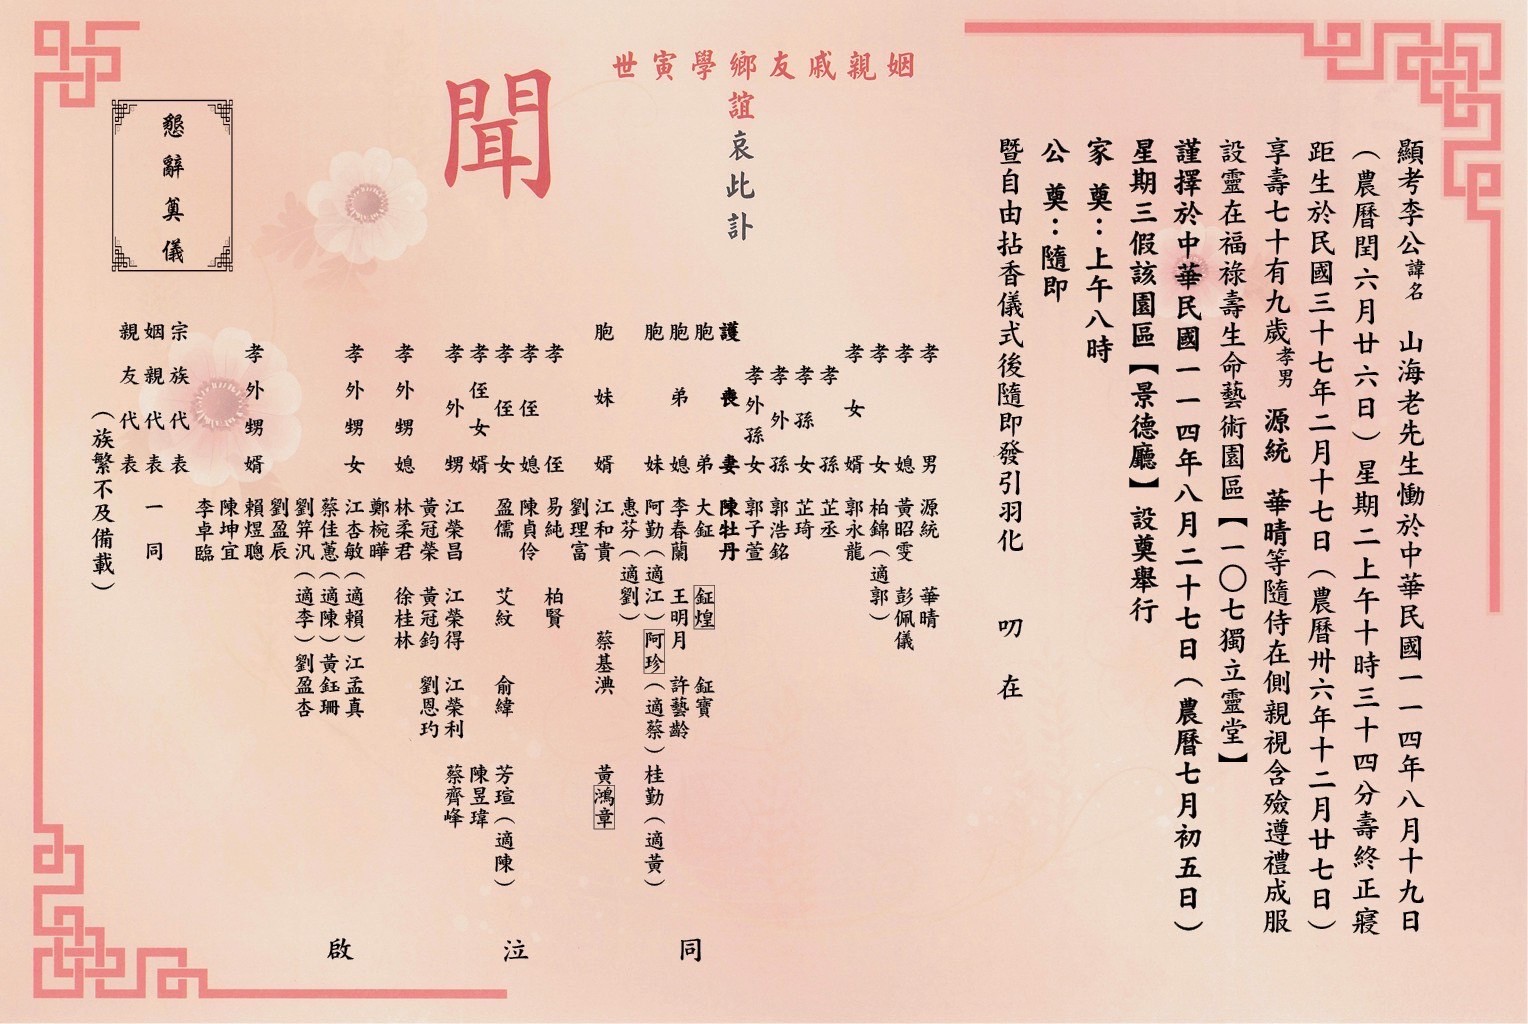 顯考李公諱名 山海老先生慟於中華民國一一四年八月十九日
（農曆閏六月廿六日）星期二上午十時三十四分壽終正寢
距生於民國三十七年二月十七日（農曆卅六年十二月廿七日）
享壽七十有九歲孝男 源統 華晴等隨侍在側親視含殮遵禮成服
設靈在福祿壽生命藝術園區【一〇七獨立靈堂】
謹擇於中華民國一一四年八月二十七日（農曆七月初五日）
星期三假該園區【景德廳】設奠舉行
家 奠：上午八時
公 奠：隨即
暨自由拈香儀式後隨即發引羽化 叨 在
姻親戚友鄉學寅世
誼哀此訃
聞
孝男 源統 華晴
孝媳 黃昭雯 彭佩儀
孝女 柏錦（適郭）
孝女婿 郭永龍
孝孫 芷丞
孝孫女 芷琦
孝外孫 郭浩銘
孝外孫女 郭子萱
護喪妻 陳牡丹
胞弟 大鉦 鉦煌 鉦寶
胞弟媳 李春蘭 王明月 許藝齡
胞妹 阿勤（適江）阿珍（適蔡）桂勤（適黃）
惠芬（適劉）
胞妹婿 江和貴 蔡基淟 黃鴻章
劉理富
孝侄 易純 柏賢
孝侄媳 陳貞伶
孝侄女 盈儒 艾紋 俞緯 芳瑄（適陳）
孝侄女婿 陳昱瑋
孝外甥 江榮昌 江榮得 江榮利 蔡齊峰
黃冠榮 黃冠鈞 劉恩玓
孝外甥媳 林柔君 徐桂林
鄭椀曄
孝外甥女 江杏敏（適賴）江孟真
蔡佳蕙（適陳）黃鈺珊
劉笄汎（適李）劉盈杏
劉盈辰
孝外甥婿 賴煜聰
陳坤宜
李卓臨
宗族代表
姻親代表 一同
親友代表
（族繁不及備載）
同 泣 啟
懇辭奠儀